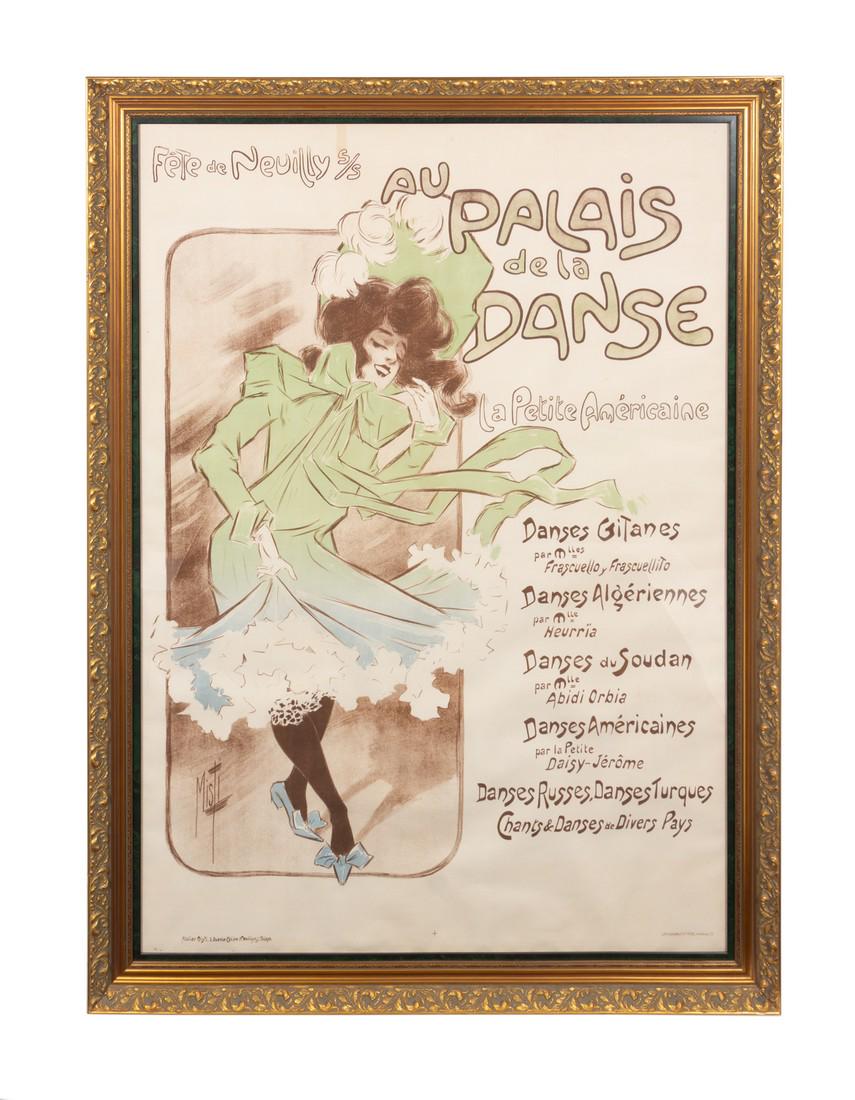 Fête de Neuilly s/s
AU
PALAIS
de la
DANSE
La Petite Américaine
Danses Gitanes
par Mlles
Frascuello y Frascuellito
Danses Algériennes
par Mlle
Heurrïa
Danses du Soudan
par Mlle
Abidi Orbia
Danses Américaines
par la Petite
Daisy-Jérôme
Danses Russes, Danses Turques
Chants & Danses de Divers Pays
Misti
Atelier